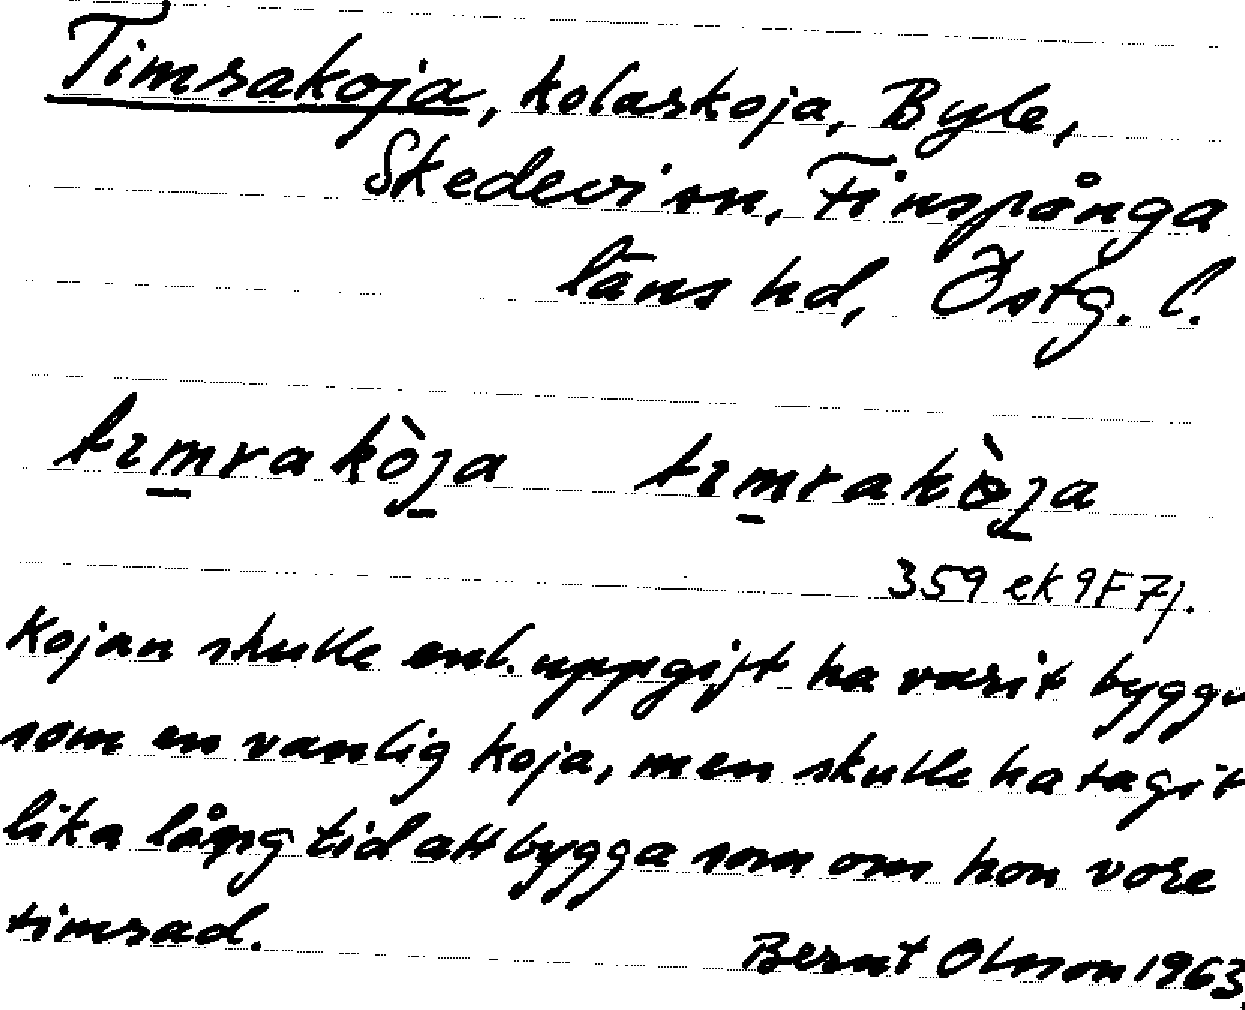 Timrakoja, kolarkoja, Byle,
Skedevi sn, Finspånga
läns hd, Östg. l.
tımrakòȷa tımrakòȷa
359 ek 9F7j.
Kojan skulle enl. uppgift ha varit byggd
som en vanlig koja, men skulle ha tagit
lika lång tid att bygga som om hon vore
timrad.
Bernt Olsson 1963.